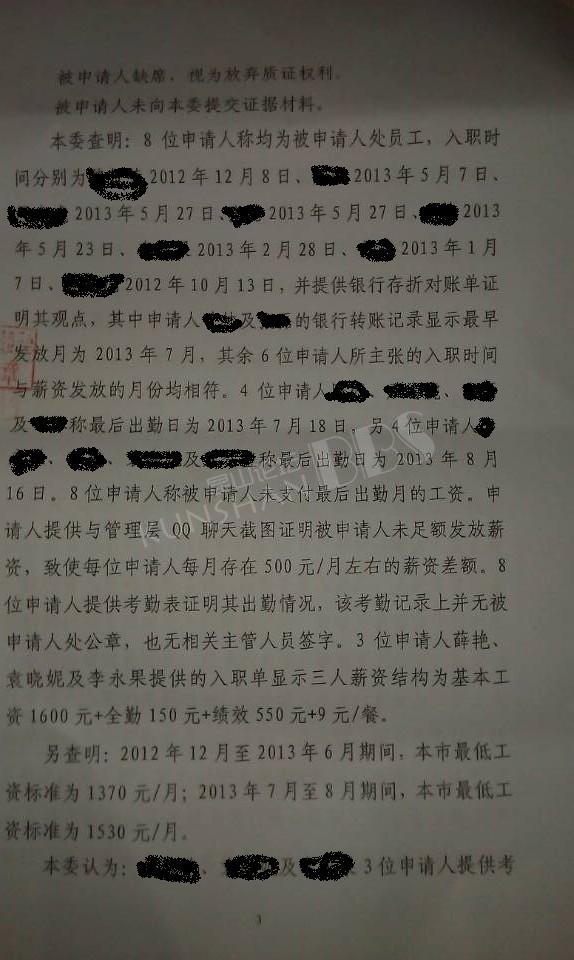 被申请人缺席，视为放弃质证权利。
被申请人未向本委提交证据材料。
本委查明：8 位申请人称均为被申请人处员工，入职时
间分别为 2012 年 12 月 8 日、 2013 年 5 月 7 日、
2013 年 5 月 27 日、 2013 年 5 月 27 日、 2013
年 5 月 23 日、 2013 年 2 月 28 日、 2013 年 1 月
7 日、 2012 年 10 月 13 日，并提供银行存折对账单证
明其观点，其中申请人 及 的银行转账记录显示最早
发放月为 2013 年 7 月，其余 6 位申请人所主张的入职时间
与薪资发放的月份均相符。4 位申请人 、 、
及 称最后出勤日为 2013 年 7 月 18 日，另 4 位申请人
、 、 及 称最后出勤日为 2013 年 8 月
16 日。8 位申请人称被申请人未支付最后出勤月的工资。申
请人提供与管理层 QQ 聊天截图证明被申请人未足额发放薪
资，致使每位申请人每月存在 500 元/月左右的薪资差额。8
位申请人提供考勤表证明其出勤情况，该考勤记录上并无被
申请人处公章，也无相关主管人员签字。3 位申请人薛艳、
袁晓妮及李永果提供的入职单显示三人薪资结构为基本工
资 1600 元+全勤 150 元+绩效 550 元+9 元/餐。
另查明：2012 年 12 月至 2013 年 6 月期间，本市最低工
资标准为 1370 元/月；2013 年 7 月至 8 月期间，本市最低工
资标准为 1530 元/月。
本委认为： 、 及 3 位申请人提供考
3
昆山论坛
KUNSHAN BBS